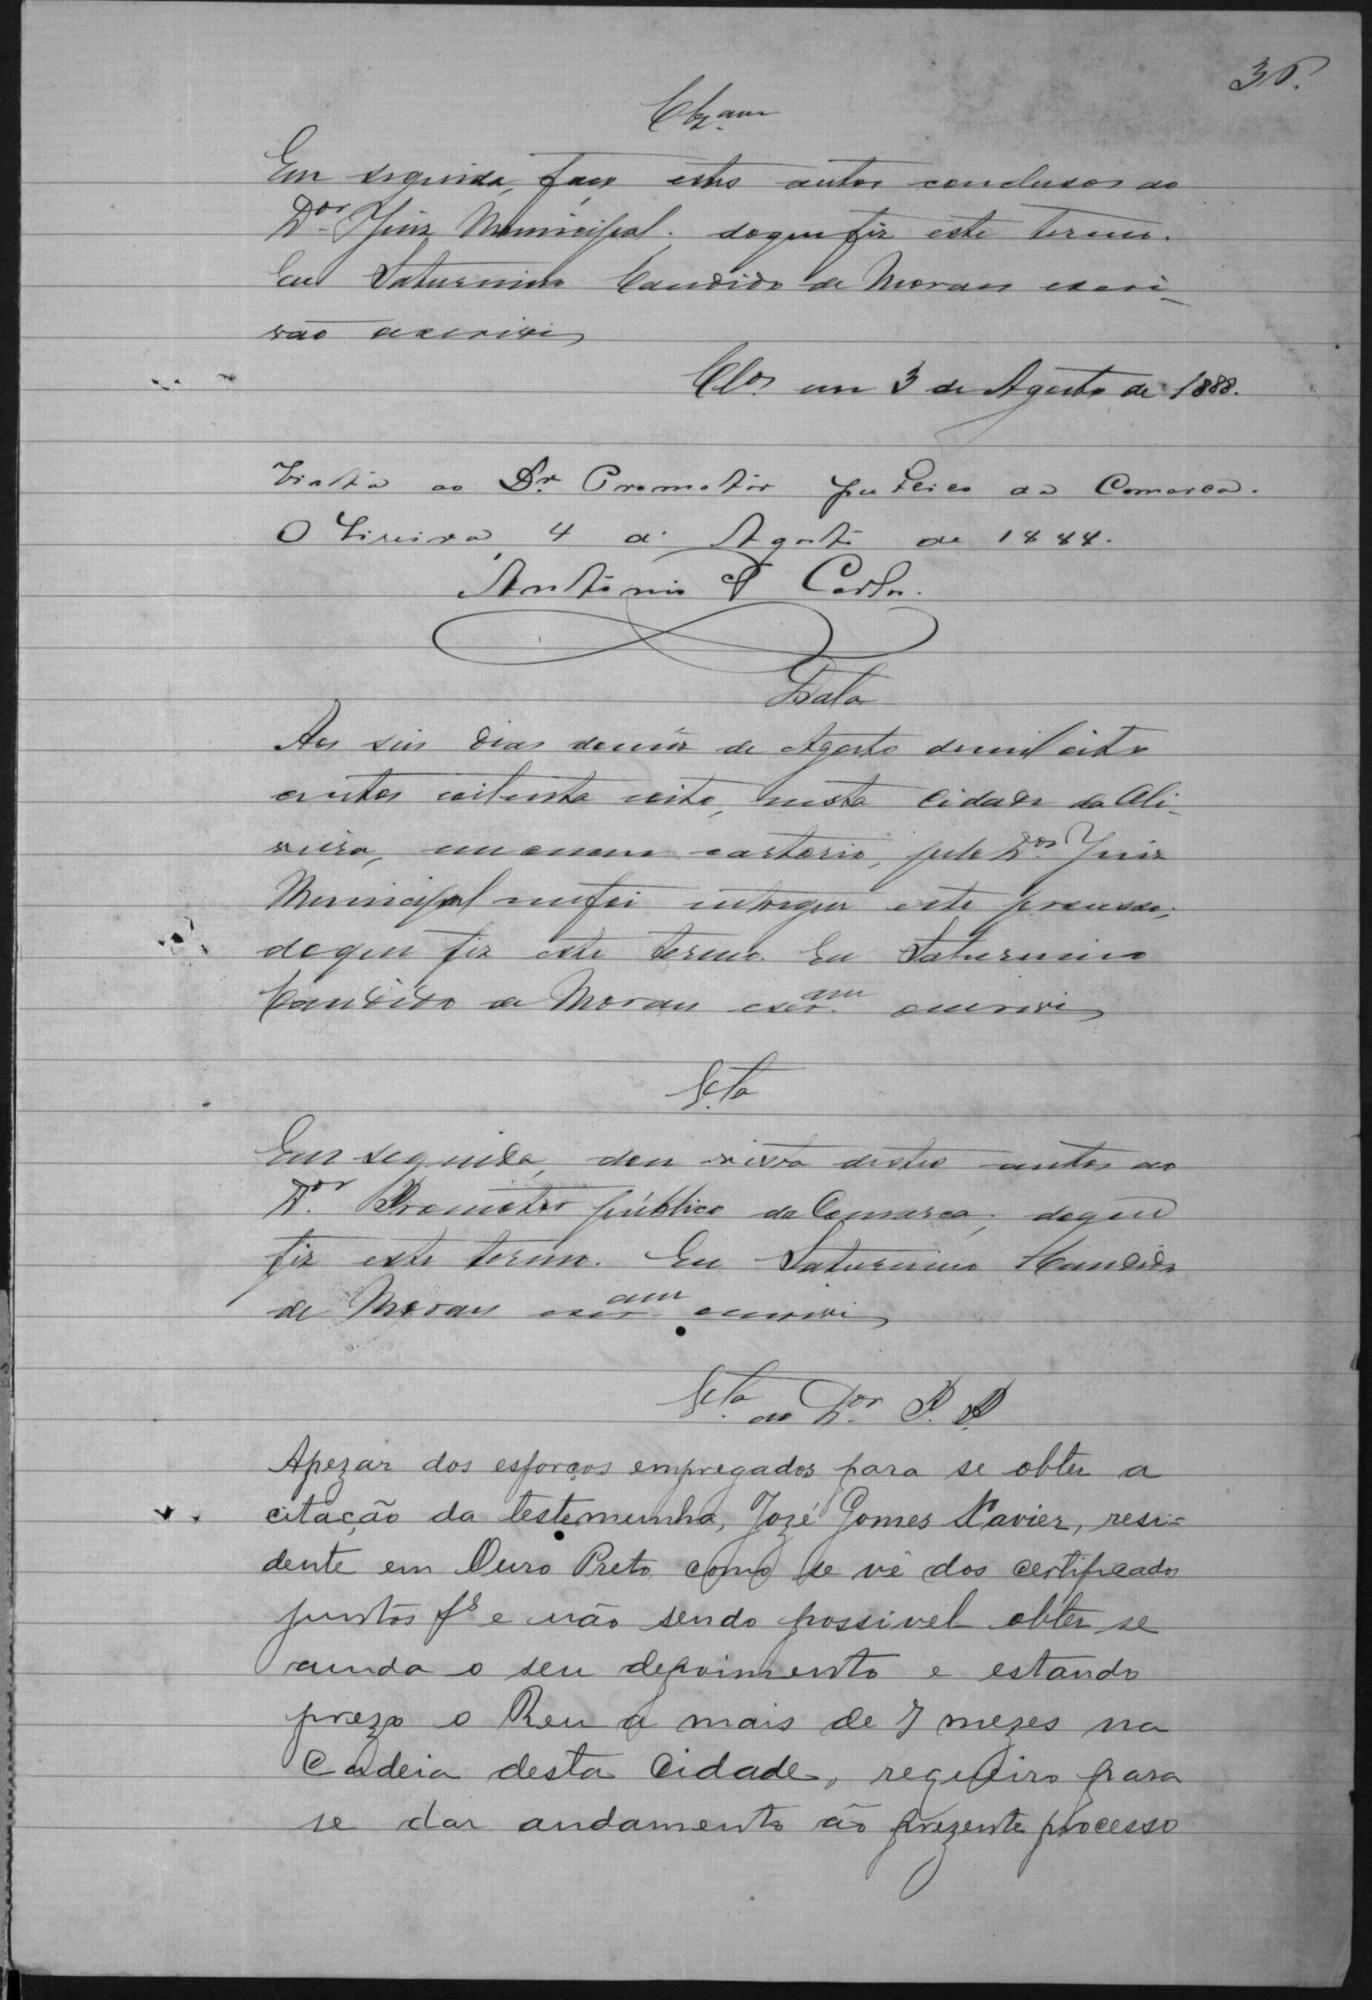 36.
Clzam
Em seguida, faço estes autos conclusos ao
Dor Juiz Municipal; doquefiz este termo.
Eu Saturnino Candido de Moraes escri-
vão escrivi
Clos em 3 de Agosto de 1888.
Vista ao Dr Promotor publico da Comarca.
Oliveira, 4 de Agosto de 1888.
Antonio Carlos.
Data
Aos seis dias domez de Agosto demil oito
centos oitenta eoito, nesta Cidade da Oli-
veira, em meu cartorio, pelo Dor Juiz
Municipal mefoi entregue este processo;
doque fiz este termo. Eu Saturnino
Candido de Moraes escram escrivi
Vta
Em seguida, dou vista destes autos ao
Dor Promotor público da Comarca; doque
fiz este termo. Eu Saturnino Candido
de Moraes escram escrivi
Vta ao Dor P. P.
Apezar dos esforços empregados para se obter a
citação da testemunha, Jozé Gomes Xavier, resi=
dente em Ouro Preto, como se vê dos certificados
juntos fs e não sendo possivel obter se
ainda o seu depoimento e estando
prezo o Reu a mais de 7 mezes na
Cadeia desta Cidade, requeiro para
se dar andamento ão prezente processo